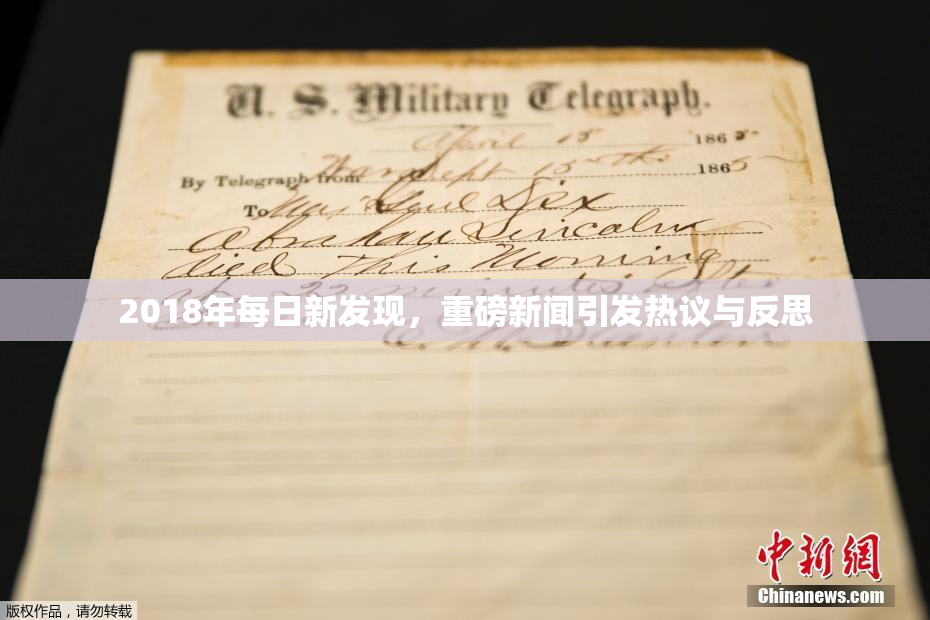 U. S. Military Telegraph.
April 15 1865
By Telegraph from War Dept 15th 1865
To Maj Genl Dix
Abraham Lincoln
died this morning
at 22 minutes after
2018年每日新发现，重磅新闻引发热议与反思
E. M. Stanton
中新网
Chinanews.com
版权作品，请勿转载